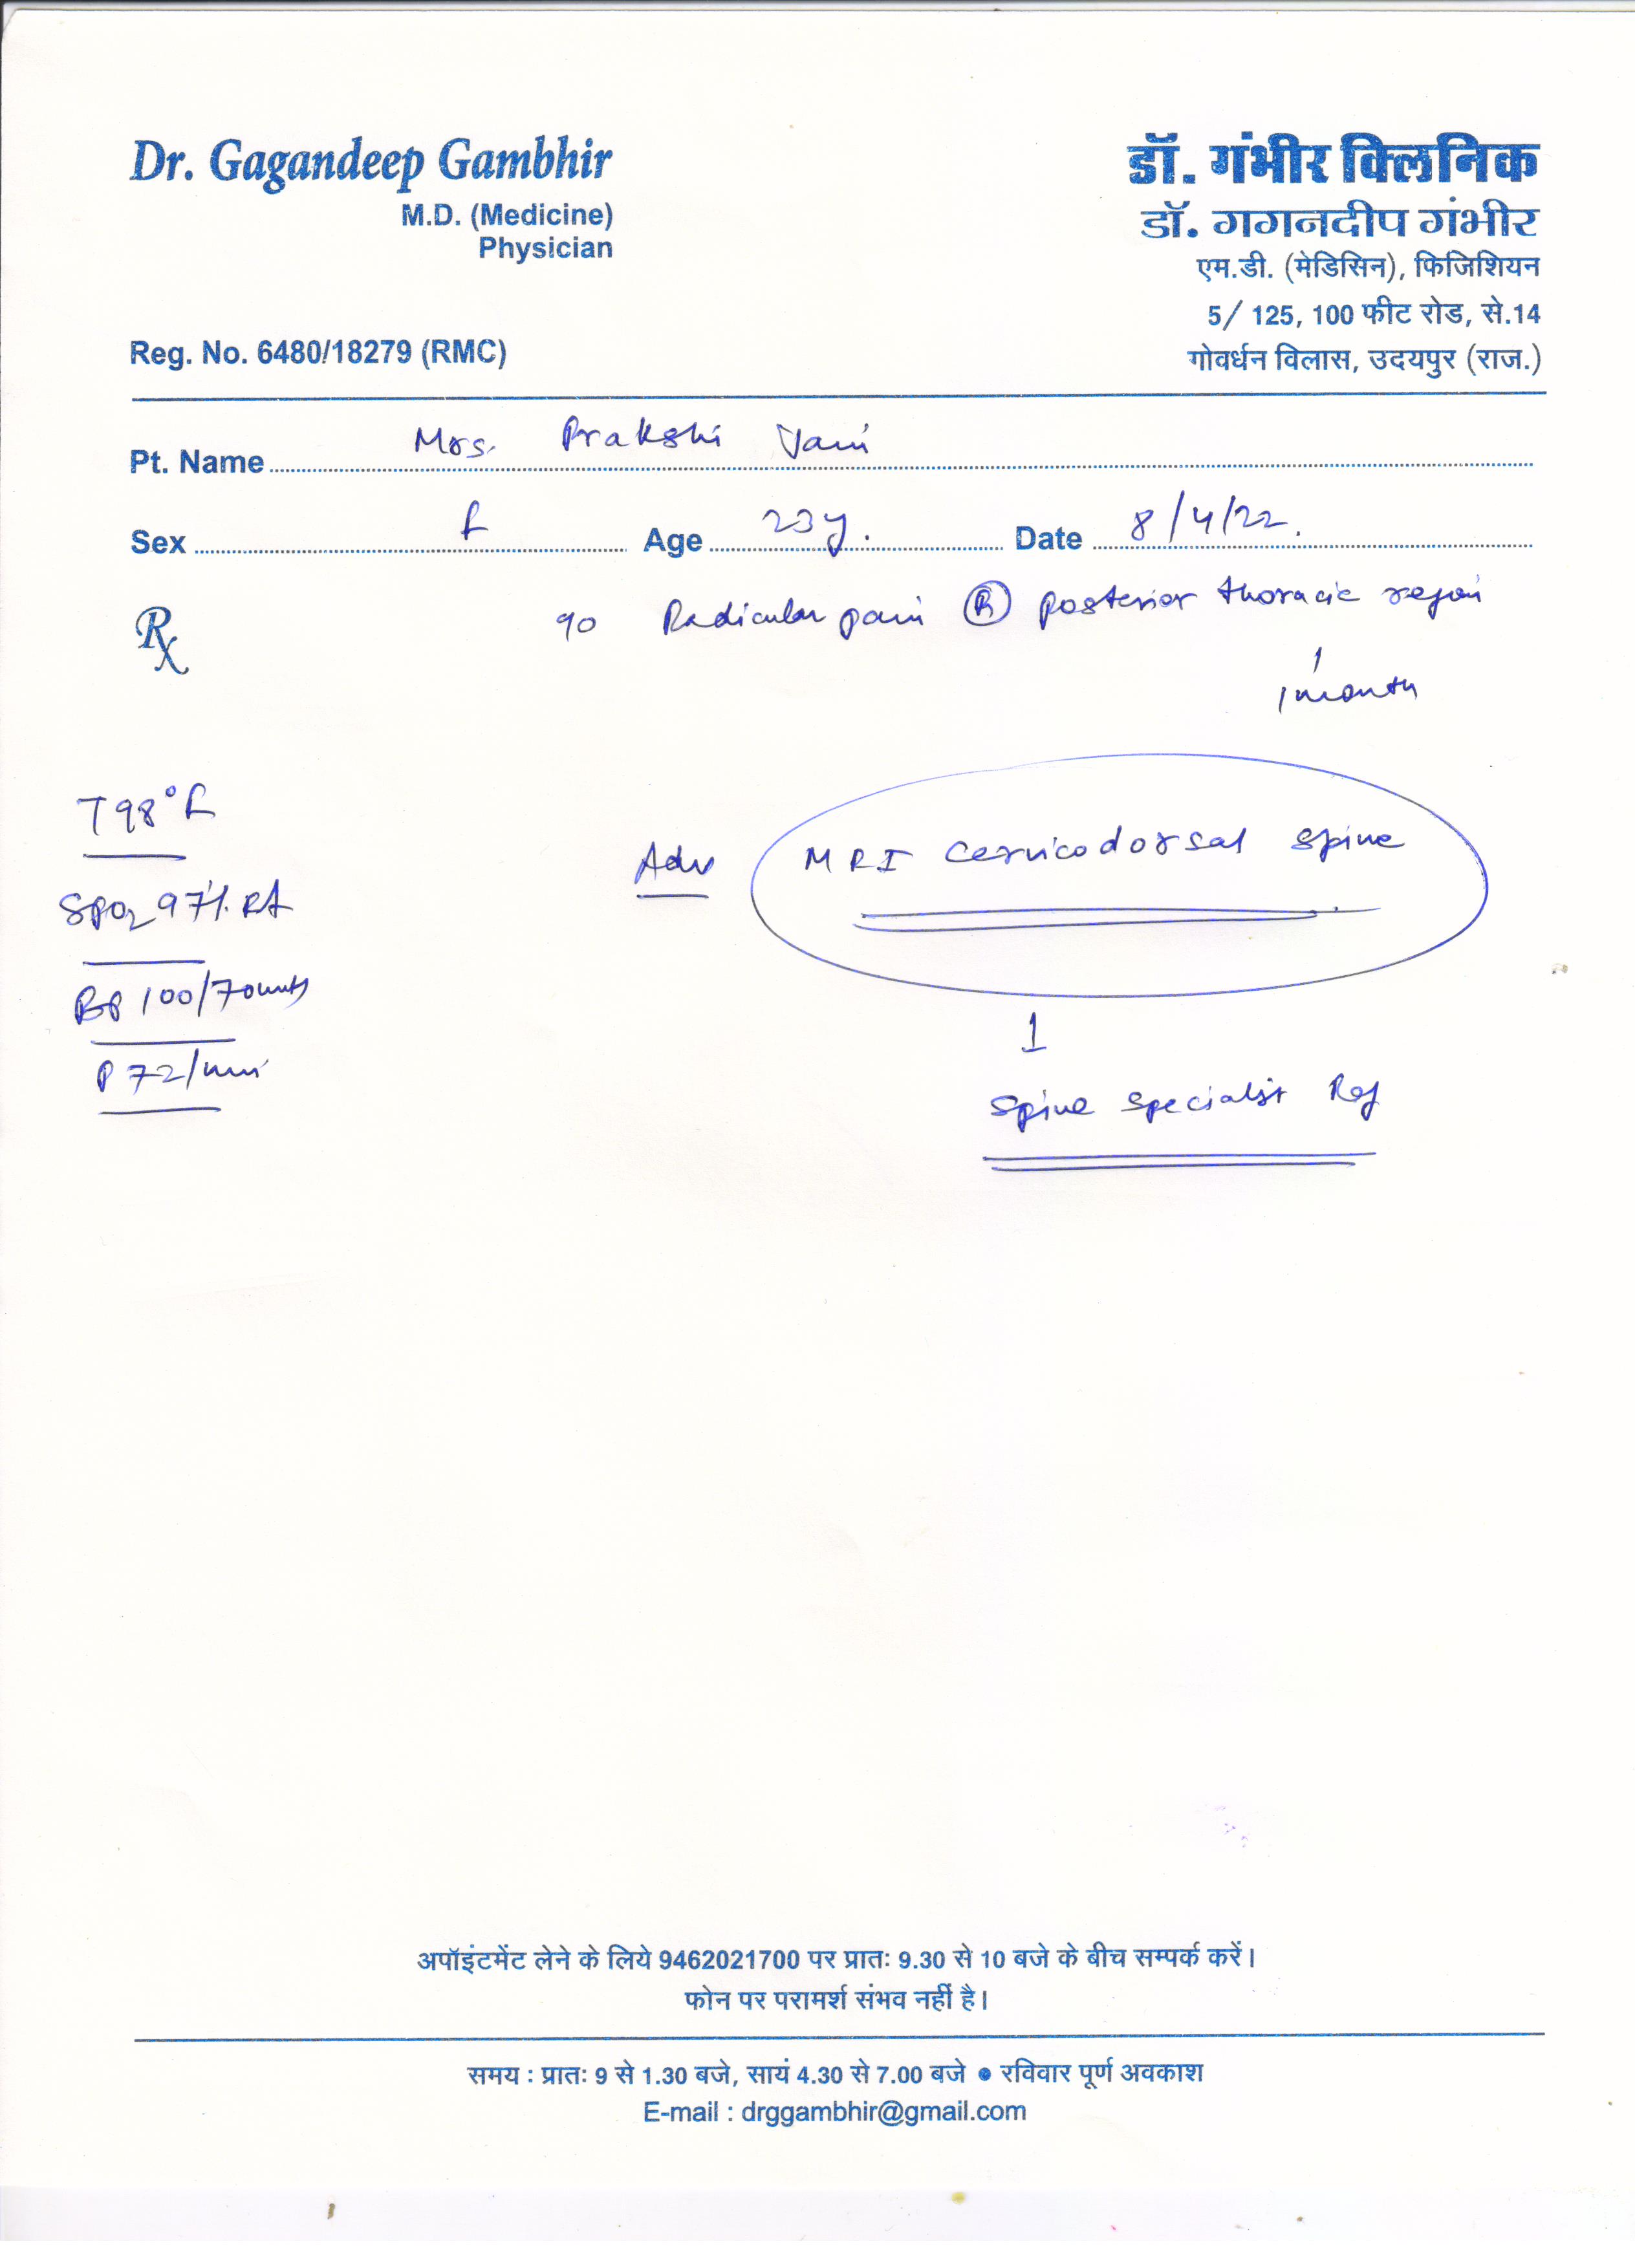 Dr. Gagandeep Gambhir
M.D. (Medicine)
Physician
Reg. No. 6480/18279 (RMC)
डॉ. गंभीर क्लिनिक
डॉ. गगनदीप गंभीर
एम.डी. (मेडिसिन), फिजिशियन
5/ 125, 100 फीट रोड, से.14
गोवर्धन विलास, उदयपुर (राज.)
Pt. Name Mrs. Prakshi
Sex F Age 23y. Date 8/4/22.
Rx Radicular pain (R) posterior thoracic region
1 month
T 98°F
SPO2 97% RA
BP 100/70mmHg
P 72/min
Adv MRI Cervicodorsal spine
Spine specialist Ref
अपॉइंटमेंट लेने के लिये 9462021700 पर प्रातः 9.30 से 10 बजे के बीच सम्पर्क करें।
फोन पर परामर्श संभव नहीं है।
समय : प्रातः 9 से 1.30 बजे, सायं 4.30 से 7.00 बजे ● रविवार पूर्ण अवकाश
E-mail : drggambhir@gmail.com